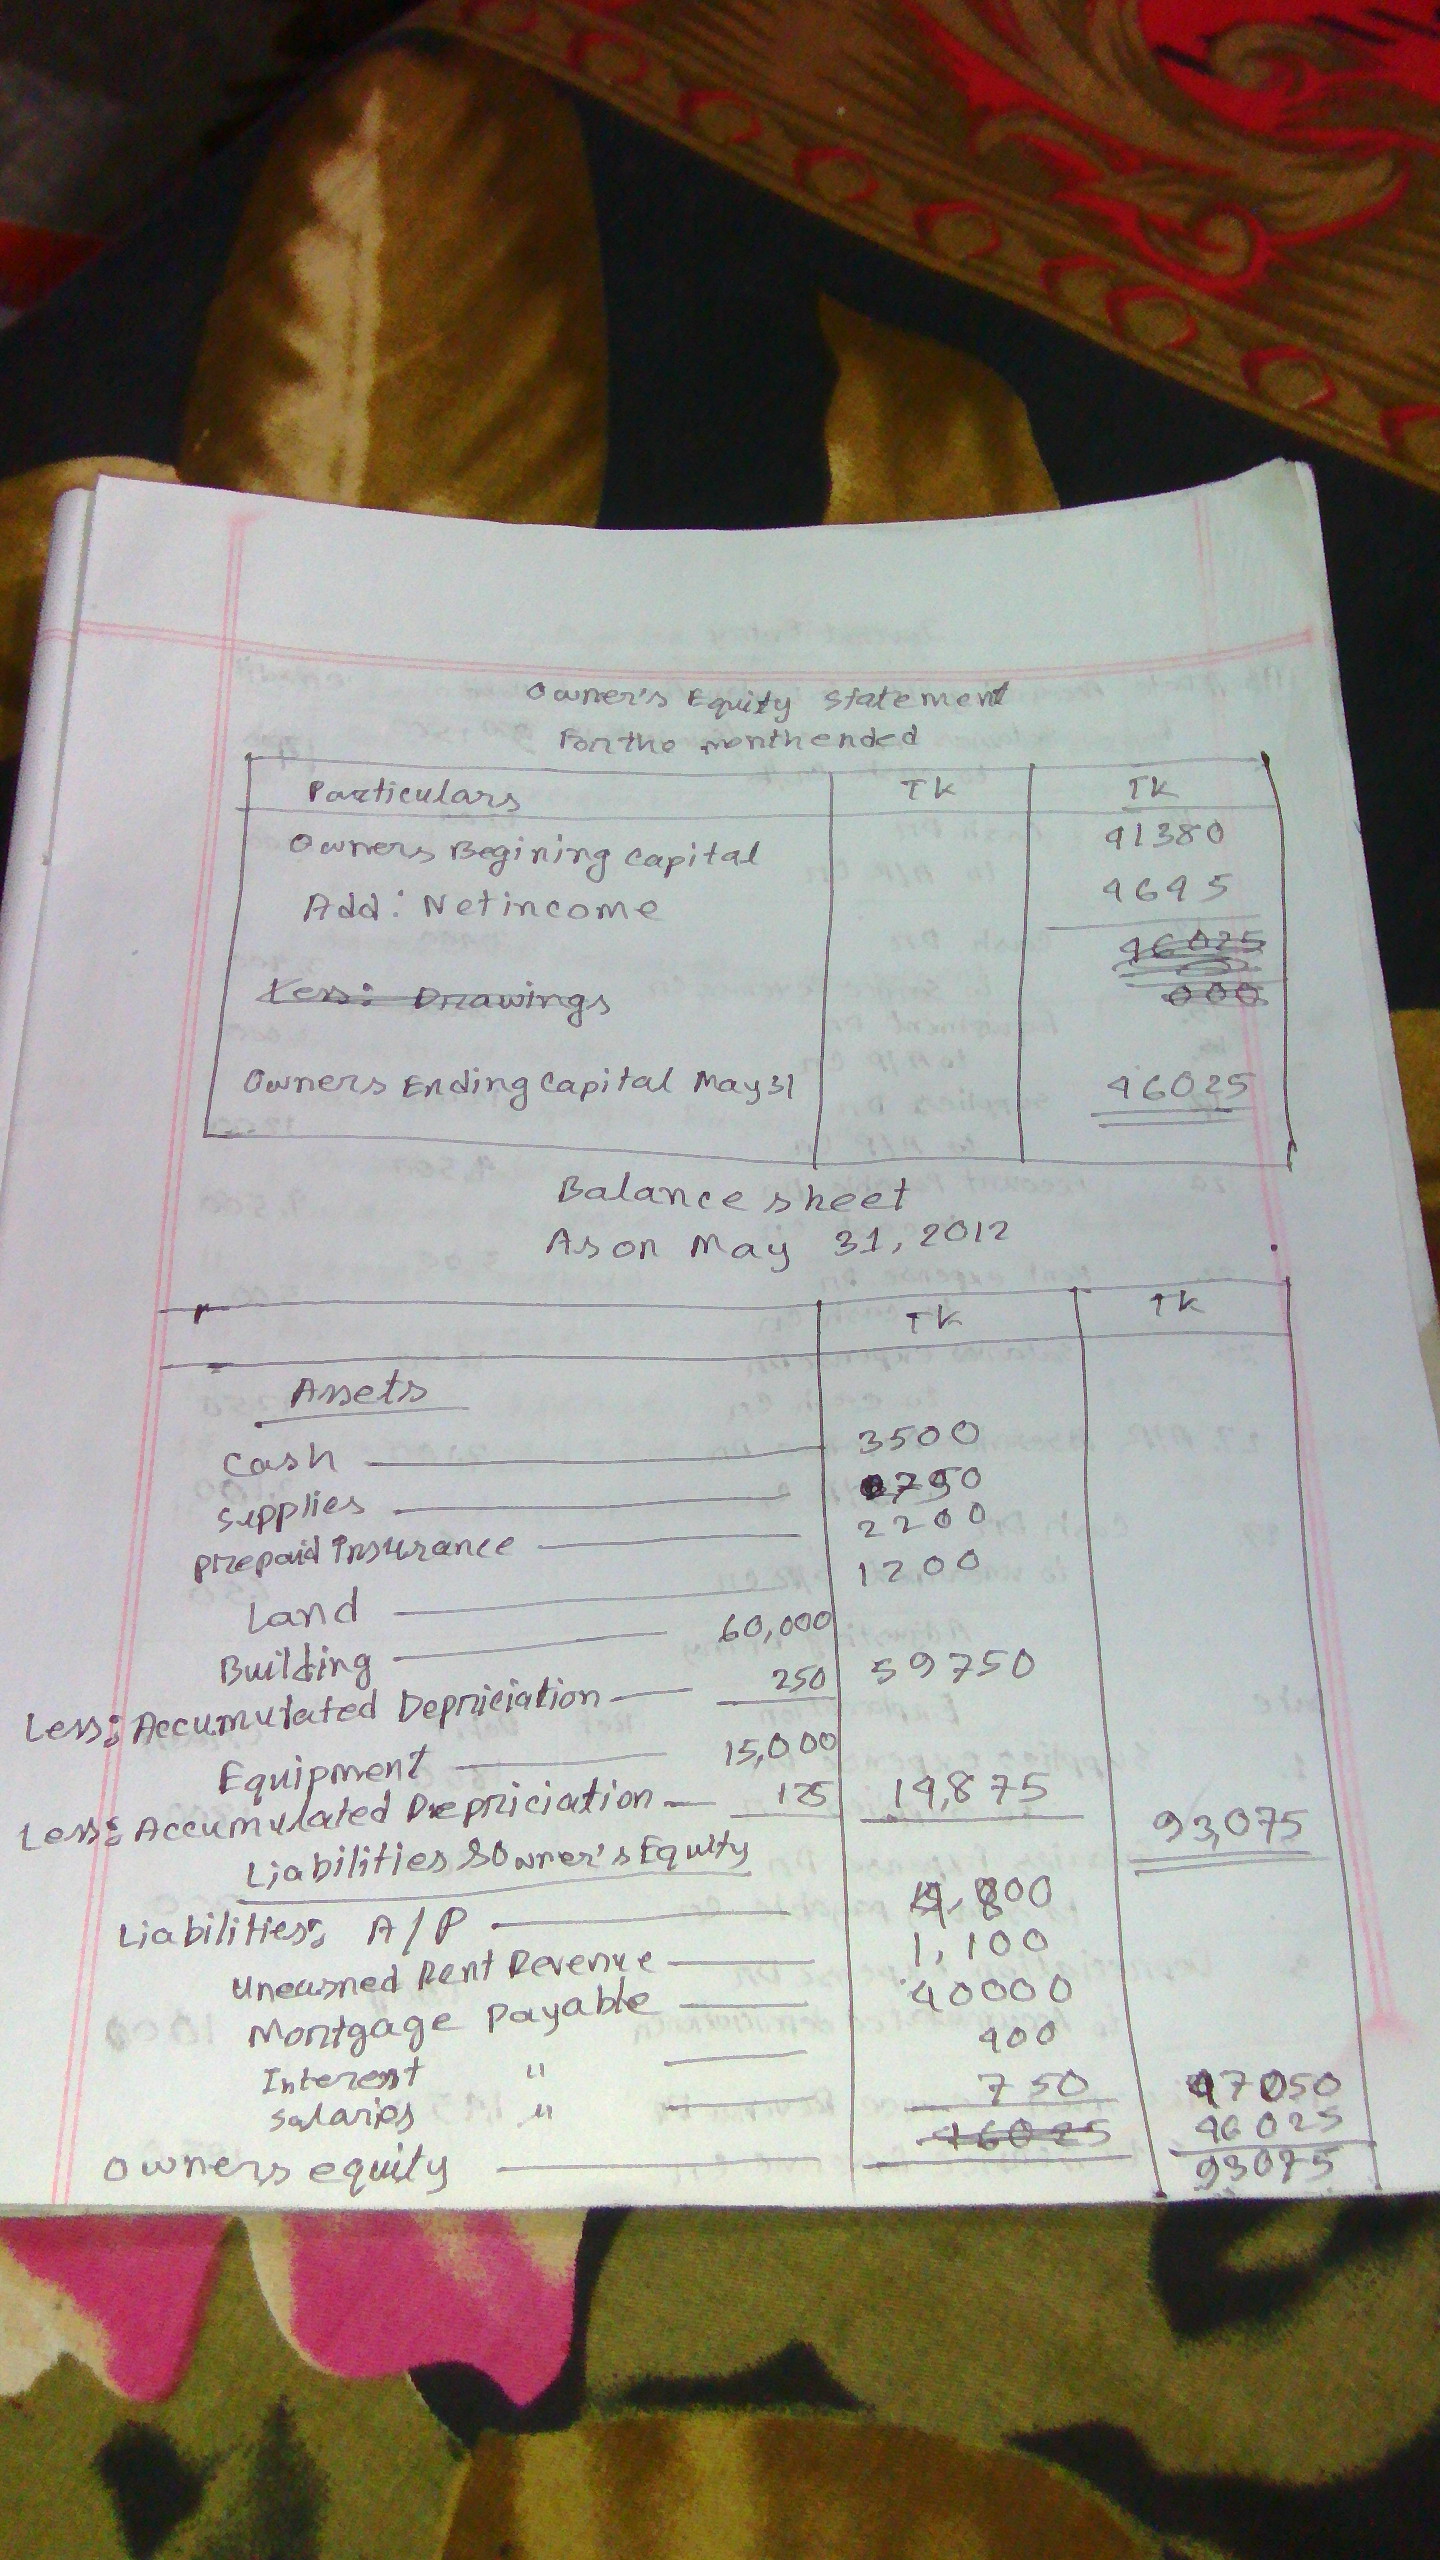 Owner's Equity Statement
For the month ended
Particulars Tk Tk
Owners Begining Capital 41380
Add: Net income 4645
46025
Less: Drawings 000
Owners Ending Capital May 31 46025
Balance sheet
As on May 31, 2012
Tk Tk
Assets
Cash 3500
Supplies
Prepaid Insurance 2200
Land 1200
Building 60,000
Less: Accumutated Depriciation 250 59750
Equipment 15,000
Less: Accumulated Depriciation 125 14,875 93,075
Liabilities & Owner's Equity
Liabilities: A/P 4,800
Unearned Rent Revenue 1,100
Mortgage Payable 40000
Interest " 400
Salaries " 750 47050
Owners equity 46025 46025
93075